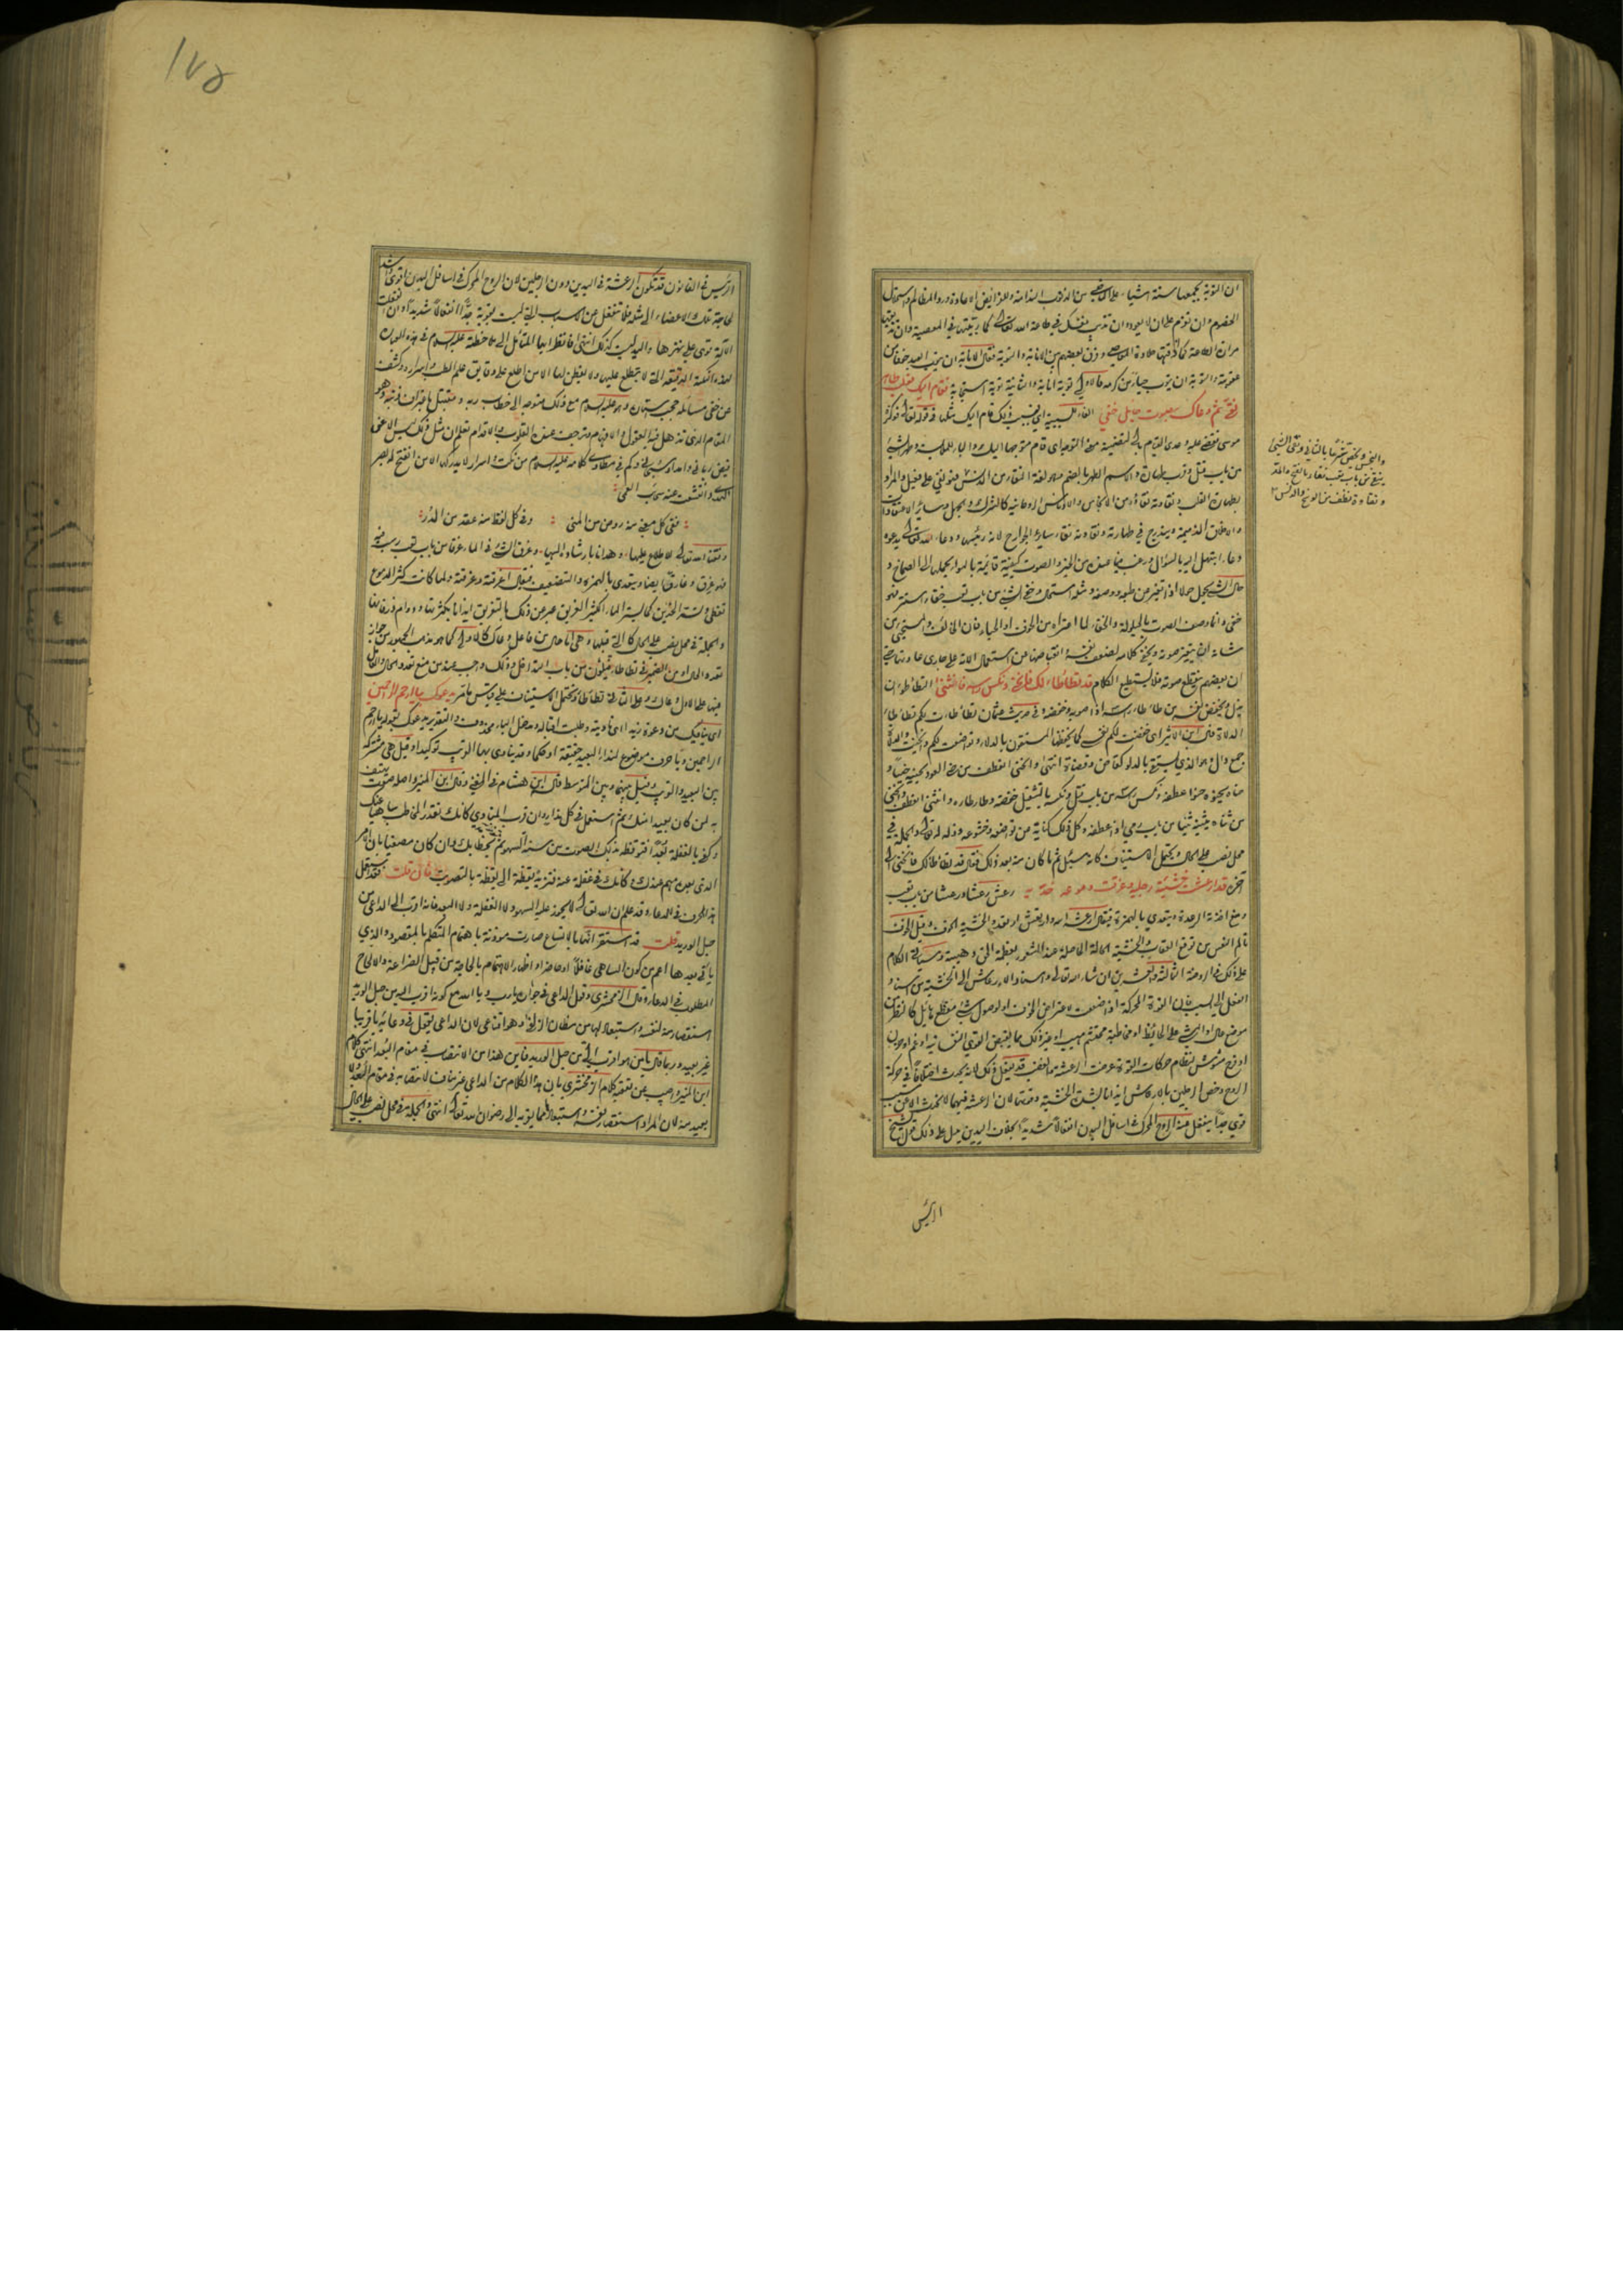 ان التوبة يجمعها ستة اشياء على الماضي من الذنوب الندامة وللفرايض الاعادة ورد المظالم واستحلال
الخصوم وان تعزم على ان لا تعود وان تذيب نفسك في طاعة الله تعالى كما ربيتها في المعصية وان تذيقها
مرارة الطاعة كما اذقتها حلاوة المعاصي وفرق بعضهم بين الانابة والتوبة فقال الانابة ان يتوب العبد خوفا من
عقوبته والتوبة ان يتوب حياء من كرمه فالاولى توبة انابة والثانية توبة استجابة فقام اليك بقلب طاهر
نقي ثم دعاك بصوت حايل خفي الفاء للسببية اي فبسبب ذلك قام اليك مثلها في قوله تعالى فوكزه
موسى فقضى عليه وعدى القيام بالى لتضمينه معنى التوجه اي قام متوجها اليك والباء للملابسة وطهر الشيء
من باب قتل وقرب طهارة والاسم الطهر بالضم وهو لغة النقاء من الدنس فهو نقي على فعيل والمراد
بطهارة القلب ونقاوته نقاؤه من الانجاس والادناس الروحانية كالشرك والجهل وسائر الاعتقادات
والاخلاق الذميمة ويندرج في طهارته ونقاوته نقاء ساير الجوارح لانه رئيسها ودعاء الله تعالى يدعوه
دعاء ابتهل اليه بالسؤال ورغب فيما عنده من الخير والصوت كيفية قائمة بالهواء يحملها الى الصماخ و
حال الشيء يحول حولا اذا تغير من طبعه ووصفه ومثله استحال وخفي الشيء من باب تعب خفاء استتر فهو
خفي وانما وصف الصوت بالحيلولة والخفاء لما اعتراه من الخوف او الحياء فان الخائف والمستحيي من
شانه ان يتغير صوته ويخفى كلامه لضعف نفسه وانقباضها عن استعمال الالة على مجاري عادتها حتى
ان بعضهم ينقطع صوته فلا يستطيع الكلام قد تطأطأ لك فانحنى ونكس راسه فانثنى التطأطؤ ان
يذل ويخفض نفسه من طأطأ راسه اذا صوبه وخفضه وفي حديث عثمان تطأطأت لكم تطأطؤ
الدلاة قال ابن الاثير اي خفضت لكم نفسي كما يخفضها المستقون بالدلاء وتواضعت لكم وانحنيت والدلاة
جمع دال وهو الذي يستقي بالدلو كقاض وقضاة انتهى وانحنى انعطف من حنى العود يحنيه حنيا و
حناه يحنوه حنوا عطفه ونكس راسه من باب قتل ونكسه بالتثقيل خفضه وطأطأه وانثنى انعطف وانحنى
من ثناه يثنيه ثنيا من باب رمى اذا عطفه وكل ذلك كناية عن تواضعه وخشوعه وذله له تعالى والجملة في
محل نصب على الحال ويحتمل الاستيناف كانه سئل ثم ما كان منه بعد ذلك فقال قد تطأطأ لك فانحنى الى
آخره قد ارعشت خشيته رجليه وغرقت دموعه خديه رعش رعشا ورعشا من باب تعب
ومنع اخذته الرعدة ويتعدى بالهمزة فيقال ارعشه الله وارتعش ارتعد والخشية الخوف وقيل الخوف
تألم النفس من توقع العقاب والخشية الحالة الحاصلة عند الشعور بعظمة الحق وهيبته وسياتي الكلام
على ذلك في الروضة الثالثة والعشرين ان شاء الله تعالى واسناد الارعاش الى الخشية من اسناد
الفعل الى السبب لان القوة المحركة اذا ضعفت لاعتراض الخوف او لوصول شيء مفظع هايل كالنظر من
موضع عال او المشي على الحايط او مخاطبة محتشم مهيب او غير ذلك مما يقبض القوى النفسانية او غم او حزن
او فرح مشوش لنظام حركات القوة عرضت الرعشة والغضب قد يفعل ذلك لانه يحدث اختلافا في حركة
الروح وخص الرجلين بالارعاش ايذانا بشدة الخشية وقوتها لان الرعشة فيهما لا تحدث الا عن سبب
قوي جدا ينفعل عنه الروح المحرك في اسافل البدن انفعالا شديدا بخلاف اليدين يدل على ذلك قول الشيخ
الرئيس
والنجس وتختص تنزيها بالثاني ونقي الشيء
ينقى من باب تعب نقاء بالفتح والمد
ونقاوة نظف من الوسخ والدنس
١٧٥
الرئيس في القانون قد تكون الرعشة في اليدين دون الرجلين لان الروح المحرك في اسافل البدن اقوى واشد
لحاجة تلك الاعضاء الى مثله فلا تنفعل عن الاسباب التي ليست بقوية جدا انفعالا شديدا وان انفعلت
الآلية قوي على نهرها واليد ليست كذلك انتهى فانظر ايها المتأمل الى ملاحظته عليه السلام في هذه العبارة
لهذه النكتة الدقيقة التي لا يطلع عليها ولا يفطن لها الا من اطلع على دقايق علم الطب واسراره وكشف
عن خفي مسائله حجب استاره وهو عليه السلام مع ذلك متوجه الى خطاب ربه ومتقبل باعترافه ذنبه وهو
المقام الذي تذهل فيه العقول والافهام وترجف عنده القلوب والاقدام تعلم ان مثل ذلك ليس الا عن
فيض رباني وامداد سبحاني وكم في مطاوي كلامه عليه السلام من نكت واسرار لا يدركها الا من انفتح له بصر
الهدى وانقشعت عنه سحب العمى
ففي كل معنى منه روض من المنى وفي كل لفظ منه عقد من الدر
وفقنا الله تعالى للاطلاع عليها وهدانا بارشاده اليها وغرق الشيء في الماء غرقا من باب تعب رسب فيه
فهو غرق وغارق ايضا ويتعدى بالهمزة والتضعيف فيقال اغرقته وغرقته ولما كانت كثرة الدموع
تغطي بشرة الخدين كما يستر الماء الكثير الغريق عبر عن ذلك بالتغريق ايذانا بكثرتها ودوام ذرفانها
والجملة في محل نصب على الحال كالتي قبلها وهي اما حال من فاعل دعاك كالاولى كما هو مذهب الجمهور من جواز
تعدد الحال او من الضمير في تطأطأ فيكون من باب التداخل وذلك واجب عند من منع تعدد الحال والعامل
فيها على الاول دعاك وعلى الثاني تطأطأ وتحتمل الاستيناف على قياس ما مر يدعوك بيا ارحم الراحمين
اي يناديك من دعوت زيدا اي ناديته وطلبت اقباله ومدخل الباء محذوف والتقدير يدعوك بقوله يا ارحم
الراحمين ويا حرف موضوع لنداء البعيد حقيقة او حكما وقد ينادى بها القريب توكيدا وقيل هي مشتركة
بين البعيد والقريب وقيل بينهما وبين المتوسط قال ابن هشام في المغني وقال ابن المنير واصله صوت يهتف
به لمن كان بعيدا منك ثم استعمل في كل نداء وان قرب المنادى كانك تقدر المخاطب ساهيا عنك
وكفى بالغفلة بعدا فتوقظه بذلك الصوت من سنة السهو ثم تخاطبك وان كان مصغيا بان الامر
الذي بعده مهم عندك وكانك في غفلة عنه فتزيد يقظة الى يقظة بالتصويت فان قلت فقد استعمل
هذا الحرف في الدعاء وقد علم ان الله تعالى لا يجوز عليه السهو ولا الغفلة ولا البعد فانه اقرب الى الداعي من
حبل الوريد قلت قد استقر انها بالاتساع صارت موذنة باهتمام المتكلم بالمقصود والذي
ياتي بعدها اعم من كون الساهي غافلا او حاضرا واظهار الاهتمام بالحاجة من قبيل الضراعة والالحاح
المطلوب في الدعاء وقال الزمخشري وقول الداعي في جؤاره يا رب ويا الله مع كونه اقرب اليه من حبل الوريد
استقصار منه لنفسه واستبعاد لها من مظان الزلفى وهو اقناعي لان الداعي ليقول في دعائه يا قريبا
غير بعيد وربما قال يا من هو اقرب الي من حبل الوريد فاين هذا من الانتصاب في مقام البعد انتهى كلام
ابن المنير واجيب عن تقوية كلام الزمخشري بان هذا الكلام من الداعي غير مناف لانتصابه في مقام البعد لا
بعيد منه لان المراد استقصار نفسه واستبعادها عما يقربه الى رضوان الله تعالى انتهى والجملة في محل نصب على الحال